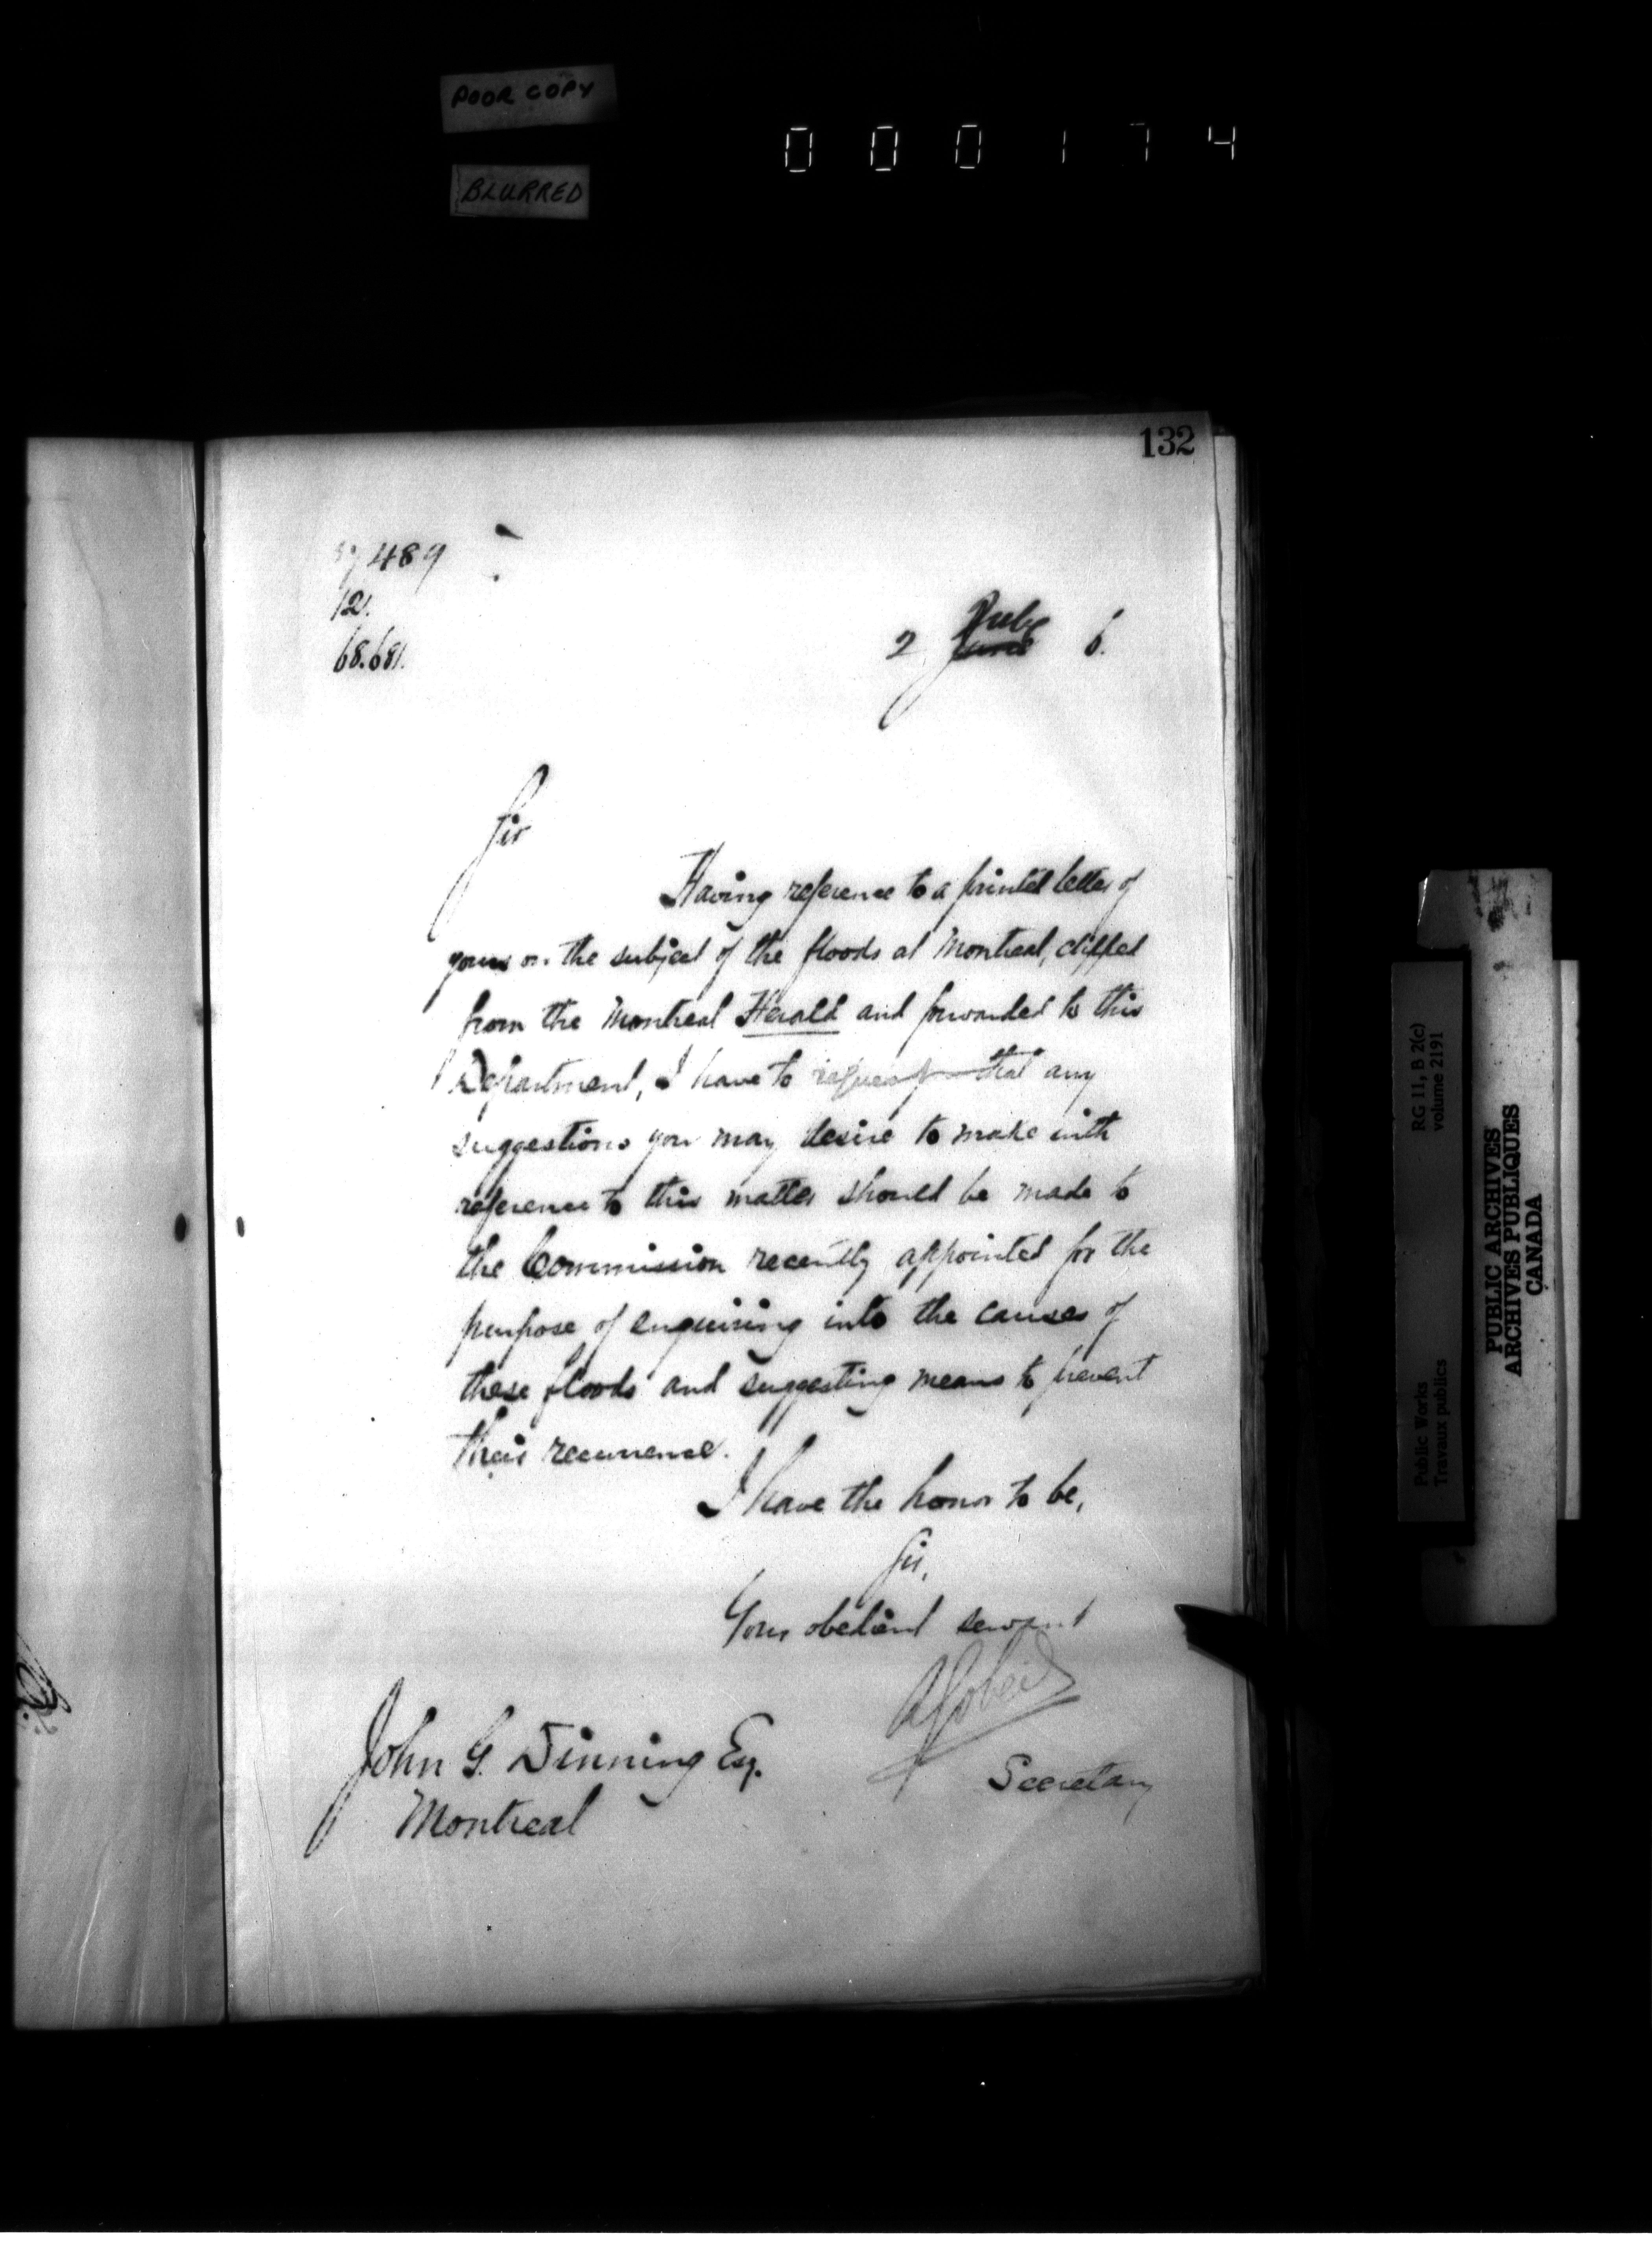 POOR COPY
BLURRED
000174
132
489
12.
68.681.
July
2 June 6.
Sir
Having reference to a printed letter of
yours on the subject of the floods at Montreal, clipped
from the Montreal Herald and forwarded to this
Department, I have to request that any
suggestions you may desire to make with
reference to this matter should be made to
the Commission recently appointed for the
purpose of enquiring into the causes of
these floods and suggesting means to prevent
their recurrence.
I have the honor to be,
Sir,
Your obedient servant
A Gobeil
Secretary
John G. Dinning Esq.
Montreal
RG 11, B 2(c)
volume 2191
Public Works
Travaux publics
PUBLIC ARCHIVES
ARCHIVES PUBLIQUES
CANADA